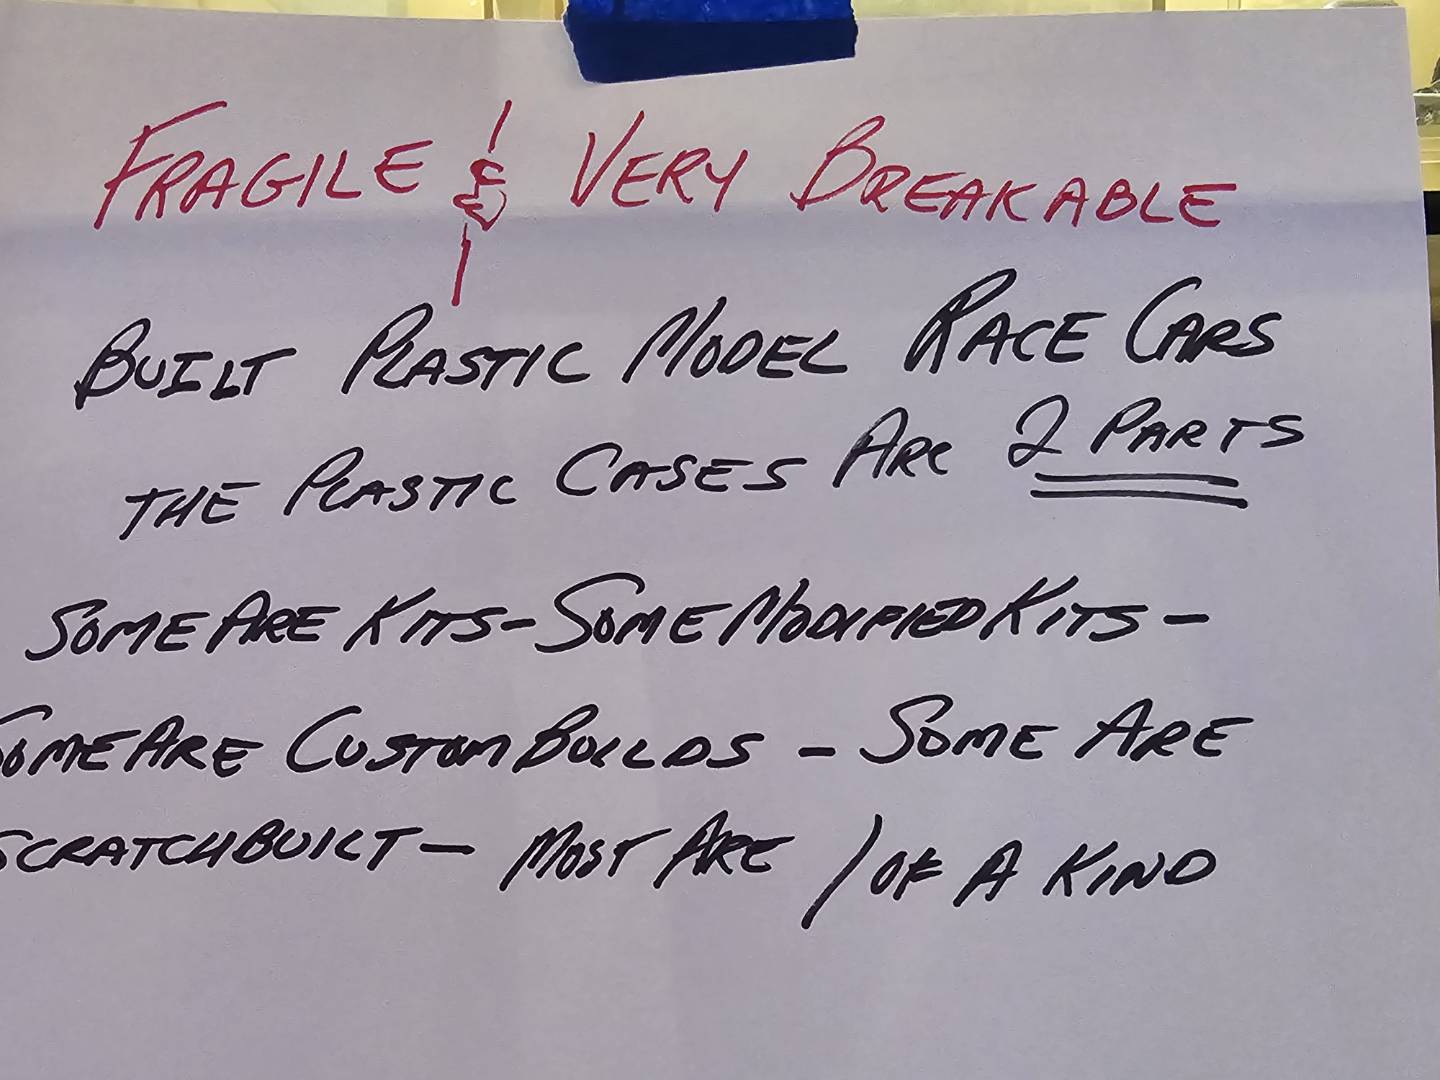 FRAGILE & VERY BREAKABLE
BUILT PLASTIC MODEL RACE CARS
THE PLASTIC CASES ARE 2 PARTS
SOME ARE KITS - SOME MODIFIED KITS -
SOME ARE CUSTOM BUILDS - SOME ARE
SCRATCHBUILT - MOST ARE 1 OF A KIND